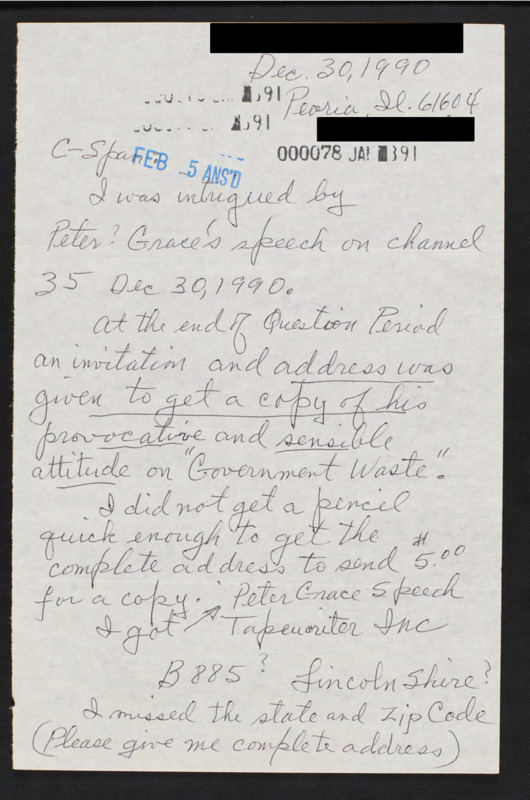 Dec. 30, 1990
Peoria, Il. 61604
91
91
000078 JAN 391
C-Span
FEB 5 ANS'D
I was intrigued by
Peter? Grace's speech on channel
35 Dec 30, 1990.
At the end of Question Period
an invitation and address was
given to get a copy of his
provocative and sensible
attitude on "Government Waste".
I did not get a pencil
quick enough to get the
complete address to send $5.00
for a copy. Peter Grace Speech
I got ↗ Tapewriter Inc
B 885? Lincoln Shire?
I missed the state and Zip Code
(Please give me complete address)